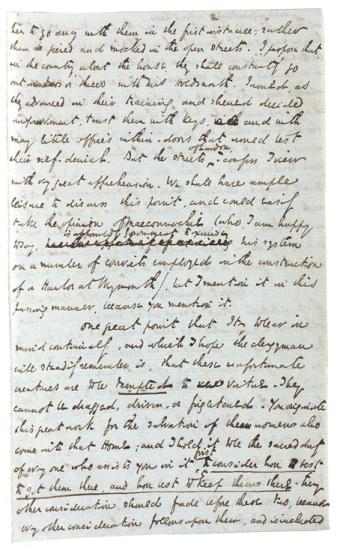 her to go away with them in the first instance; rather
than be peered and mocked in the open streets. I suppose that
in the country about the house they shall constantly go
out in twos or threes with Mrs Holdsworth. I would, as
they advanced in their training, and shewed decided
improvement, trust them with keys, and with
many little offices within-doors that would test
their self-denial. But the streets of London, I confess I view
with very great apprehension. We shall have ample
leisure to discuss this point, and could easily
take the opinion of Maconnochie (who I am happy
to say, is appointed Government to exercise his system
on a number of convicts employed in the construction
of a Harbor at Weymouth), but I mention it in this
passing manner, because you mention it.
One great point that I try to bear in
mind continually, and which I hope the clergyman
will steadily remember, is, that these unfortunate
creatures are to be tempted to virtue. They
cannot be dragged, driven, or frightened. You originate
this great work for the salvation of the women who
come into that Home; and I hold it to be the sacred duty
of every one who assists you in it first to consider how best
to get them there, and how best to keep them there. Every
other consideration should fade before these two, because
every other consideration follows upon them, and is included